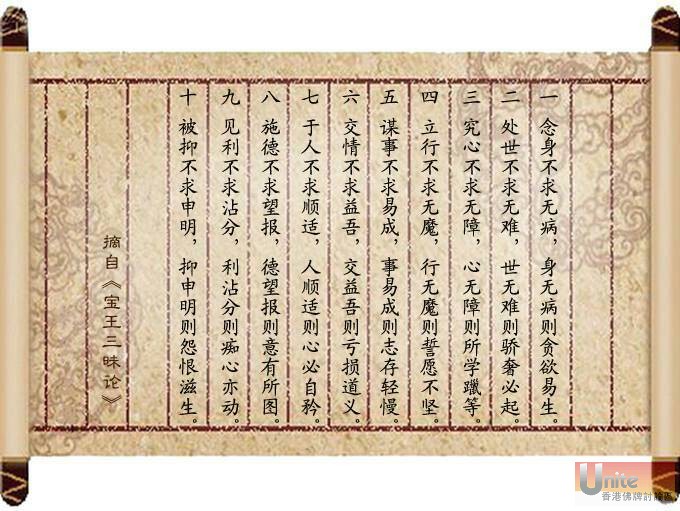 一 念身不求无病，身无病则贪欲易生。
二 处世不求无难，世无难则骄奢必起。
三 究心不求无障，心无障则所学躐等。
四 立行不求无魔，行无魔则誓愿不坚。
五 谋事不求易成，事易成则志存轻慢。
六 交情不求益吾，交益吾则亏损道义。
七 于人不求顺适，人顺适则心必自矜。
八 施德不求望报，德望报则意有所图。
九 见利不求沾分，利沾分则痴心亦动。
十 被抑不求申明，抑申明则怨恨滋生。
摘自《宝王三昧论》
Unite
香港佛牌討論區